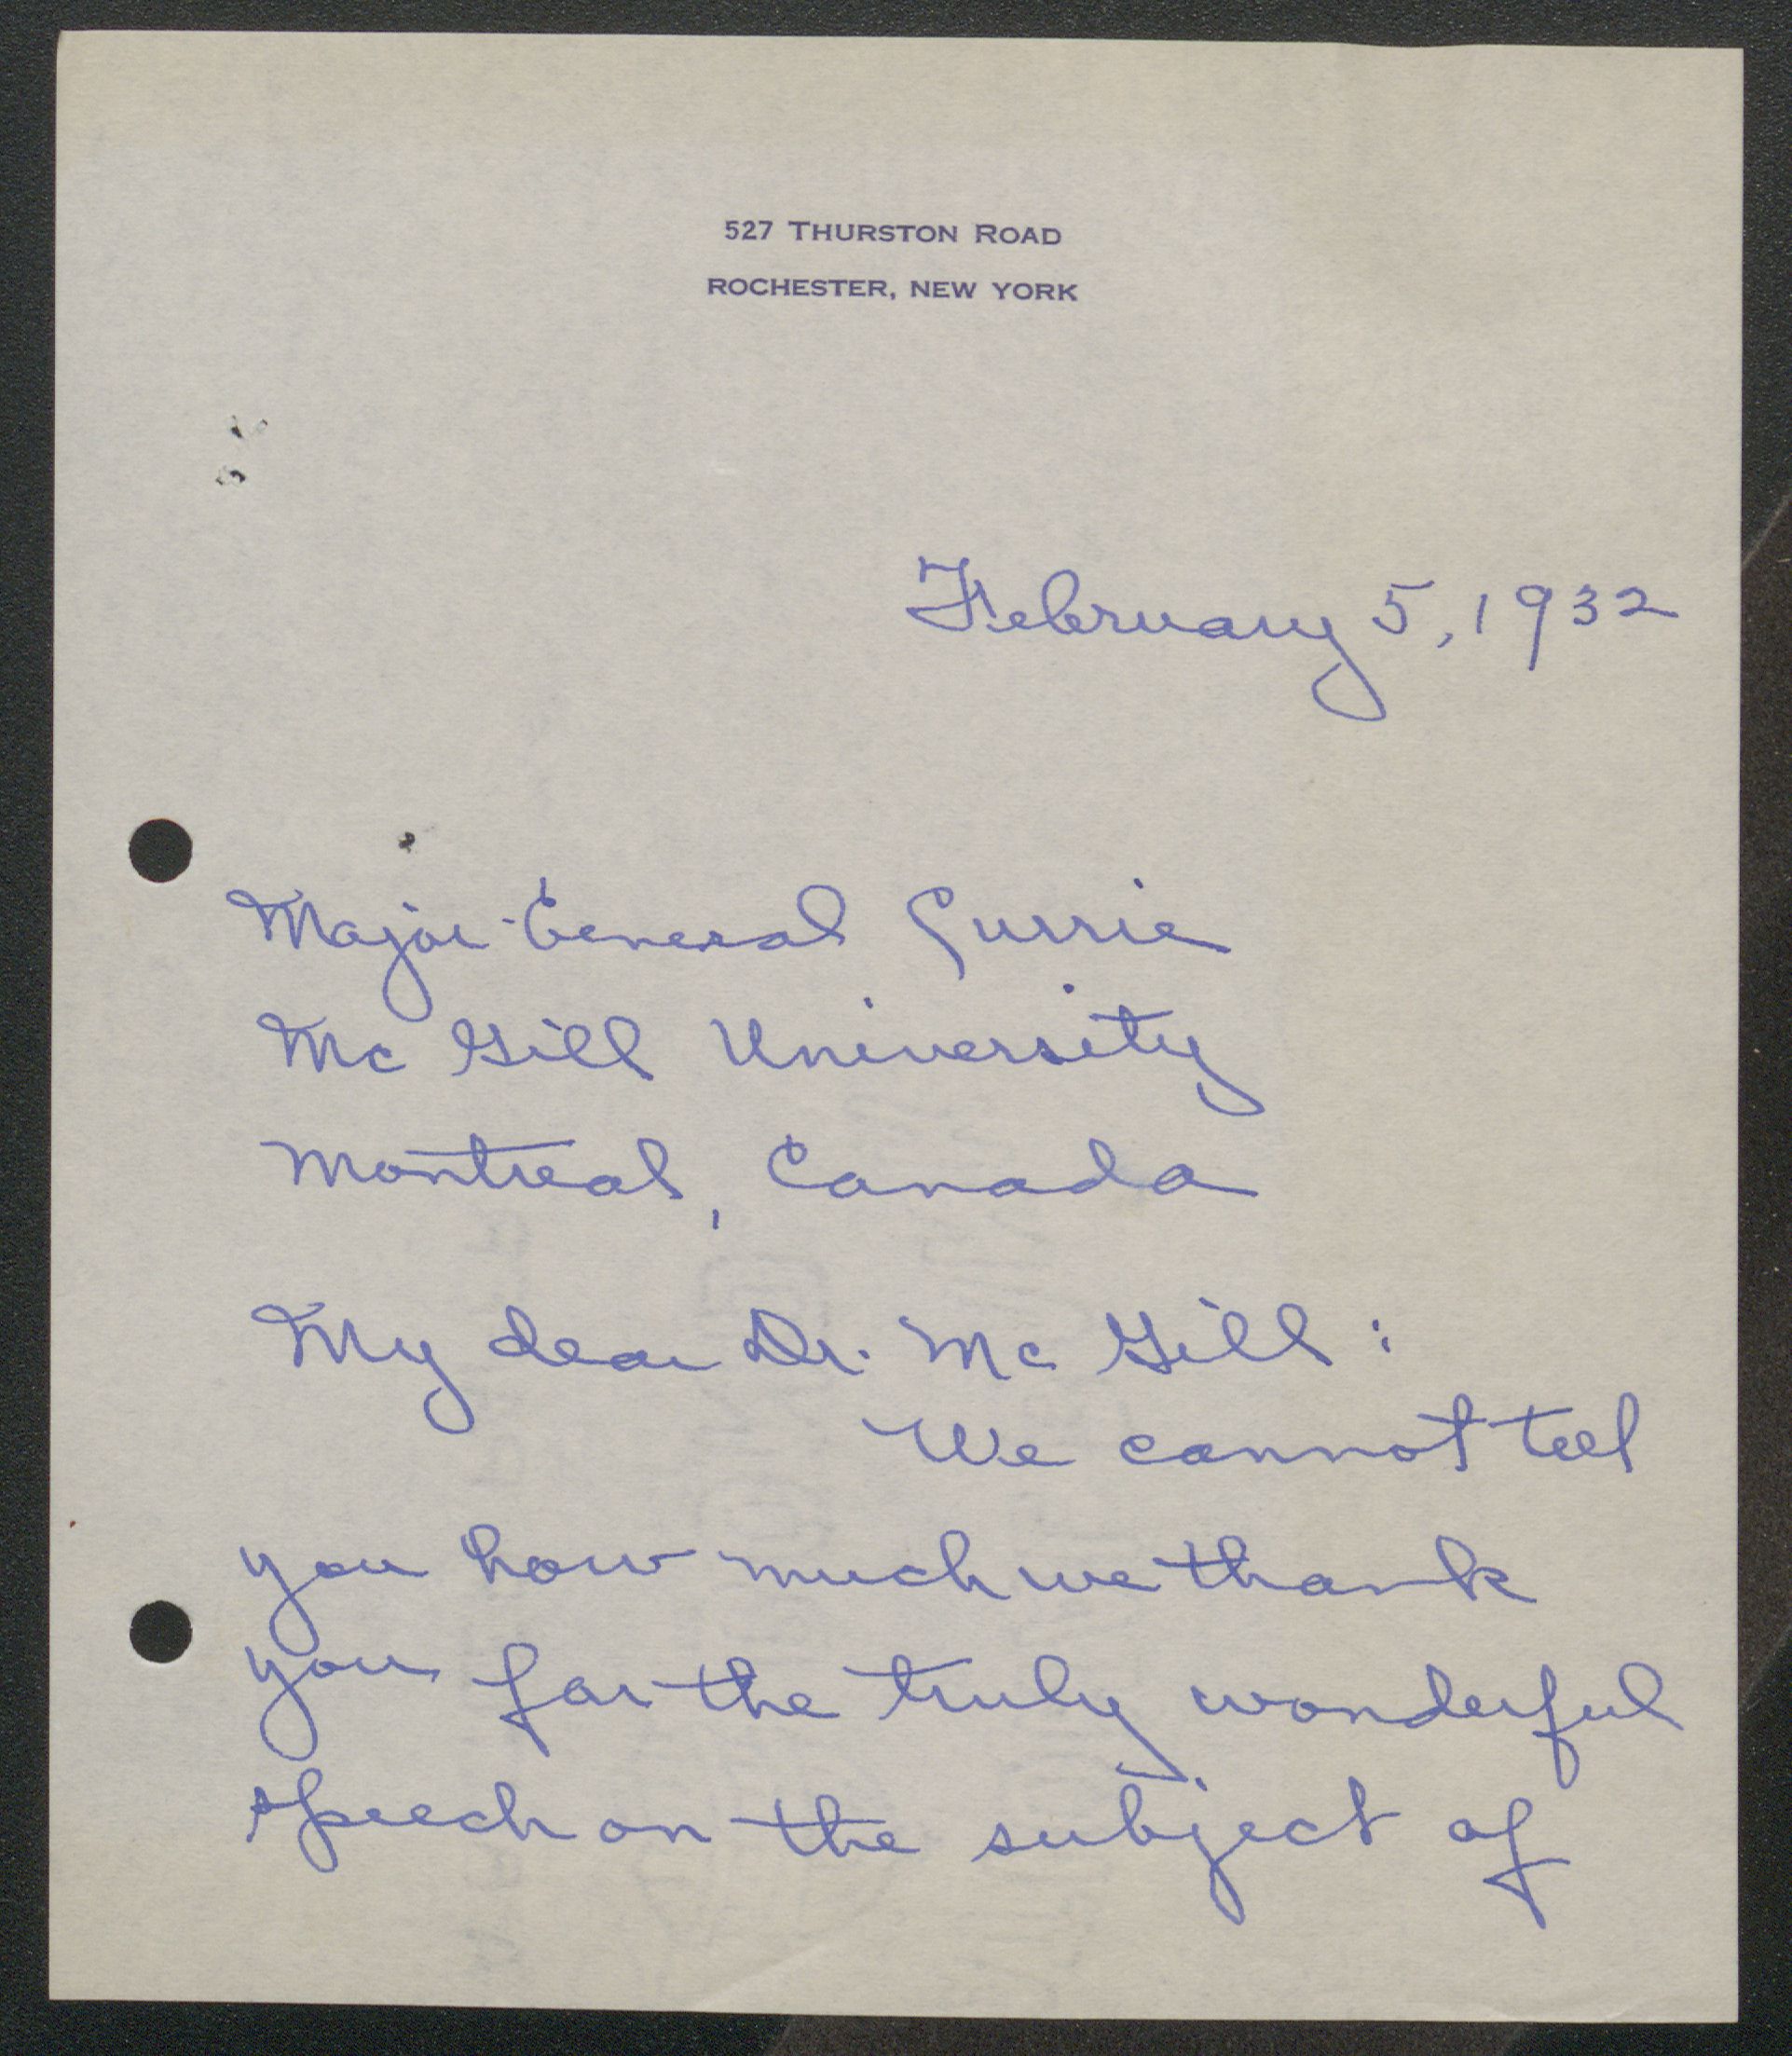 527 THURSTON ROAD
ROCHESTER, NEW YORK
February 5, 1932
Major-General Currie
Mc Gill University
Montreal, Canada
My dear Dr. Mc Gill:
We cannot tell
you how much we thank
you for the truly wonderful
speech on the subject of